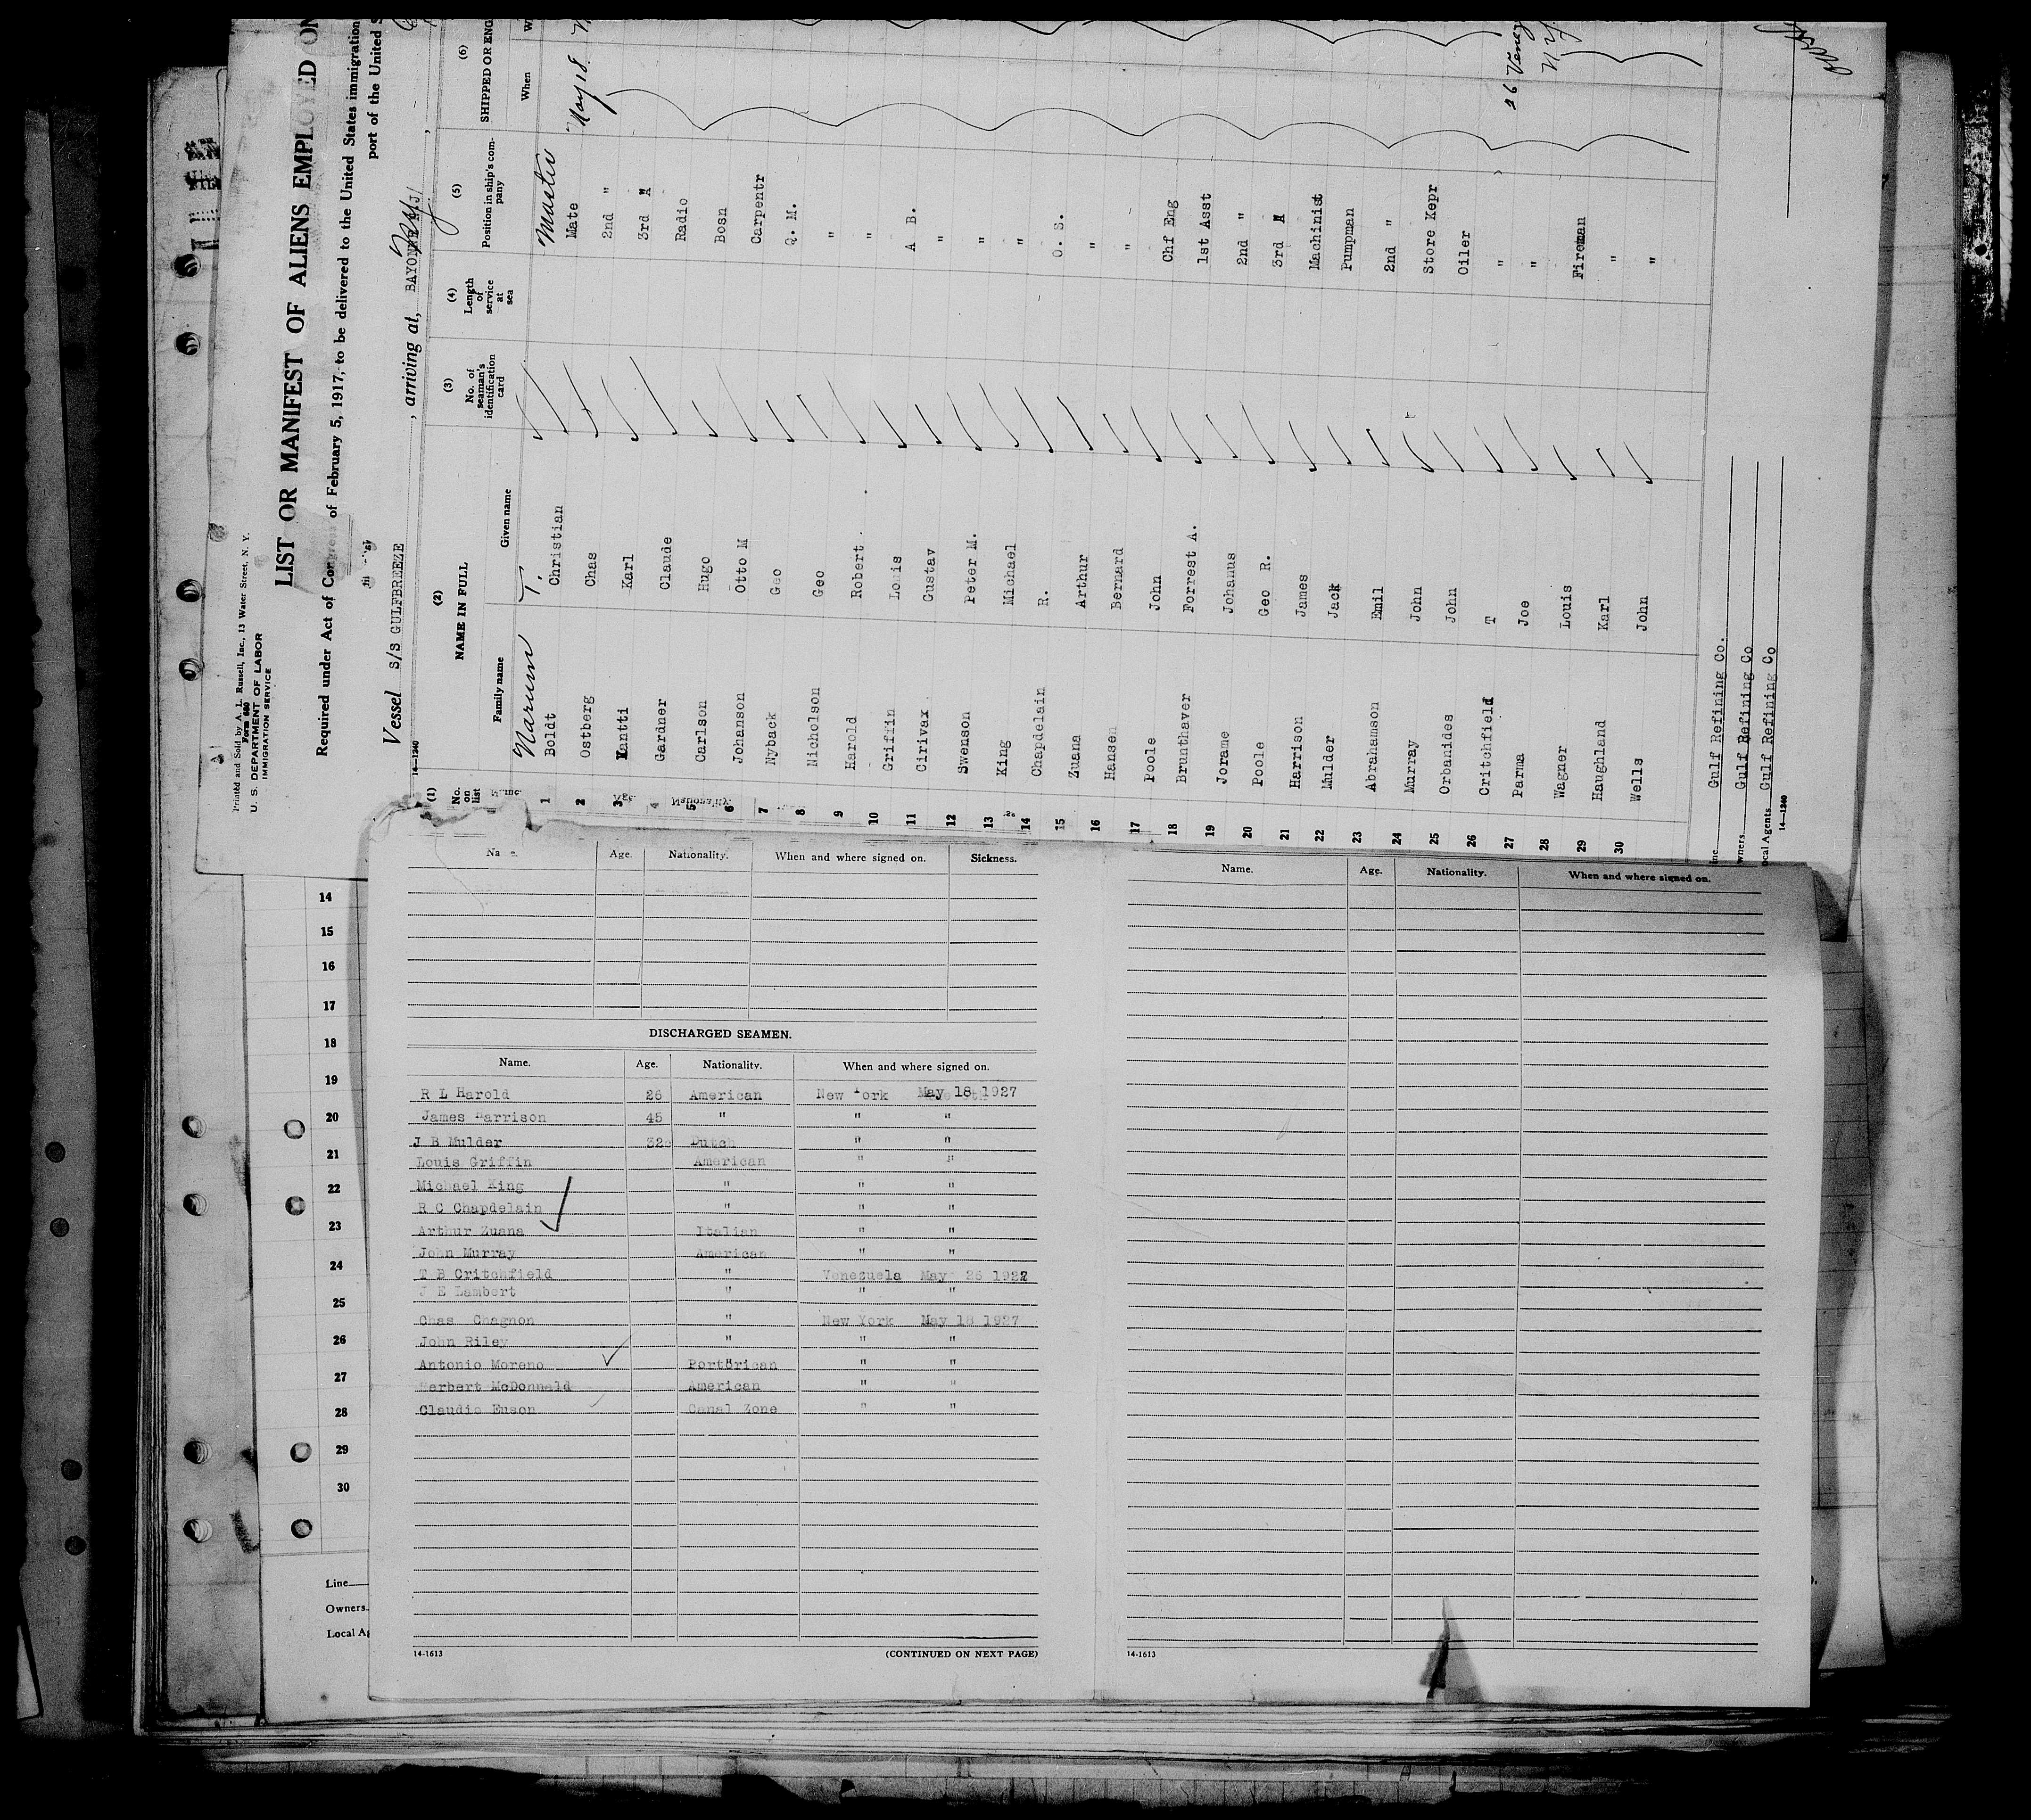 Printed and Sold by A. L. Russell, Inc., 13 Water Street, N. Y.
Form 680
U. S. DEPARTMENT OF LABOR
IMMIGRATION SERVICE
LIST OR MANIFEST OF ALIENS EMPLOYED ON
Required under Act of Congress of February 5, 1917, to be delivered to the United States immigration
port of the United S
Vessel S/S GULFBREEZE , arriving at, BAYONNE NJ/ NY ,
14—1240
(1) (2) (3) (4) (5) (6)
No. on list NAME IN FULL No. of seaman's identification card Length of service at sea Position in ship's company SHIPPED OR ENG
Family name Given name When W
Narum T. Master May 18
1 Boldt Christian Mate
2 Ostberg Chas 2nd "
3 Kantti Karl 3rd "
4 Gardner Claude Radio
5 Carlson Hugo Bosn
6 Johanson Otto M Carpentr
7 Nyback Geo Q. M.
8 Nicholson Geo "
9 Harold Robert . "
10 Griffin Louis A B.
11 Cirivax Gustav "
12 Swenson Peter M. "
13 King Michael "
14 Chapdelain R. O. S.
15 Zuana Arthur "
16 Hansen Bernard "
17 Poole John Chf Eng
18 Brunthaver Forrest A. 1st Asst
19 Jorame Johanus 2nd "
20 Poole Geo R. 3rd "
21 Harrison James Machinist
22 Mulder Jack Pumpman
23 Abrahamson Emil 2nd "
24 Murray John Store Kepr
25 Orbanides John Oiler
26 Critchfield T " 26 Venez
27 Parma Joe " N Y.
28 Wagner Louis Fireman
29 Haughland Karl "
30 Wells John "
ine Gulf Refining Co.
wners Gulf Refining Co
ocal Agents Gulf Refining Co
14—1240
Na e Age. Nationality. When and where signed on. Sickness.
DISCHARGED SEAMEN.
Name. Age. Nationality. When and where signed on.
R L Harold 26 American New York May 18 1927
James Harrison 45 " " "
J B Mulder 32 Dutch " "
Louis Griffin American " "
Michael King " " "
R C Chapdelain " " "
Arthur Zuana Italian " "
John Murray American " "
T B Critchfield " Venezuela May 26 1927
J E Lambert " " "
Chas Chagnon " New York May 18 1927
John Riley " " "
Antonio Moreno Portorican " "
Herbert McDonnald American " "
Claudio Euson Canal Zone " "
14-1613 (CONTINUED ON NEXT PAGE)
Name. Age. Nationality. When and where signed on.
14-1613
14
15
16
17
18
19
20
21
22
23
24
25
26
27
28
29
30
Line
Owners
Local Ag